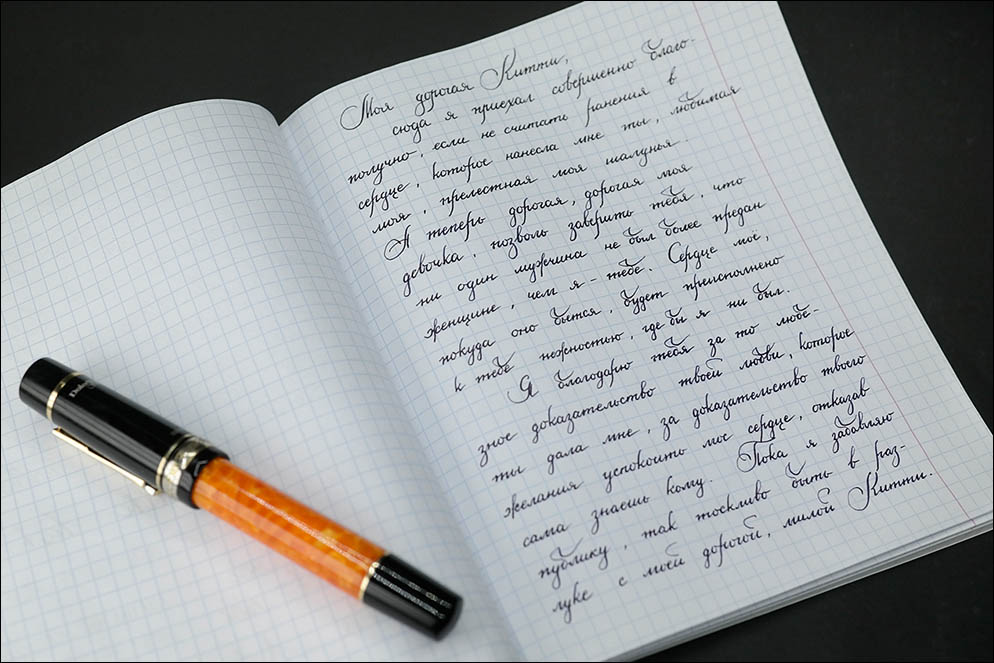 Моя дорогая Китти,
сюда я приехал совершенно благо-
получно, если не считать ранения в
сердце, которое нанесла мне ты, любимая
моя, прелестная моя шалунья.
А теперь дорогая, дорогая моя
девочка, позволь заверить тебя, что
ни один мужчина не был более предан
женщине, чем я - тебе. Сердце моё,
покуда оно бьтся, будет приисполнено
к тебе нежностью, где бы я ни был.
Я благодарю тебя за то любе-
зное доказательство твоей любви, которое
ты дала мне, за доказательство твоего
желания успокоить мое сердце, отказав
сама знаешь кому. Пока я забавляю
публику, так тоскливо быть в раз-
луке с моей дорогой, милой Китти.